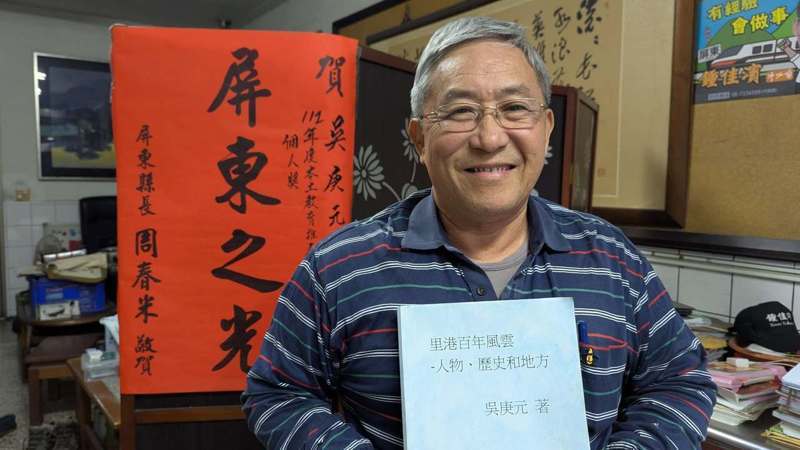 賀 吳庚元
112年度本土教育推
個人獎
屏東之光
屏東縣長 周春米 敬賀
里港百年風雲
-人物、歷史和地方
吳庚元 著
有經驗
會做事
屏東
鍾佳濱
鍾佳